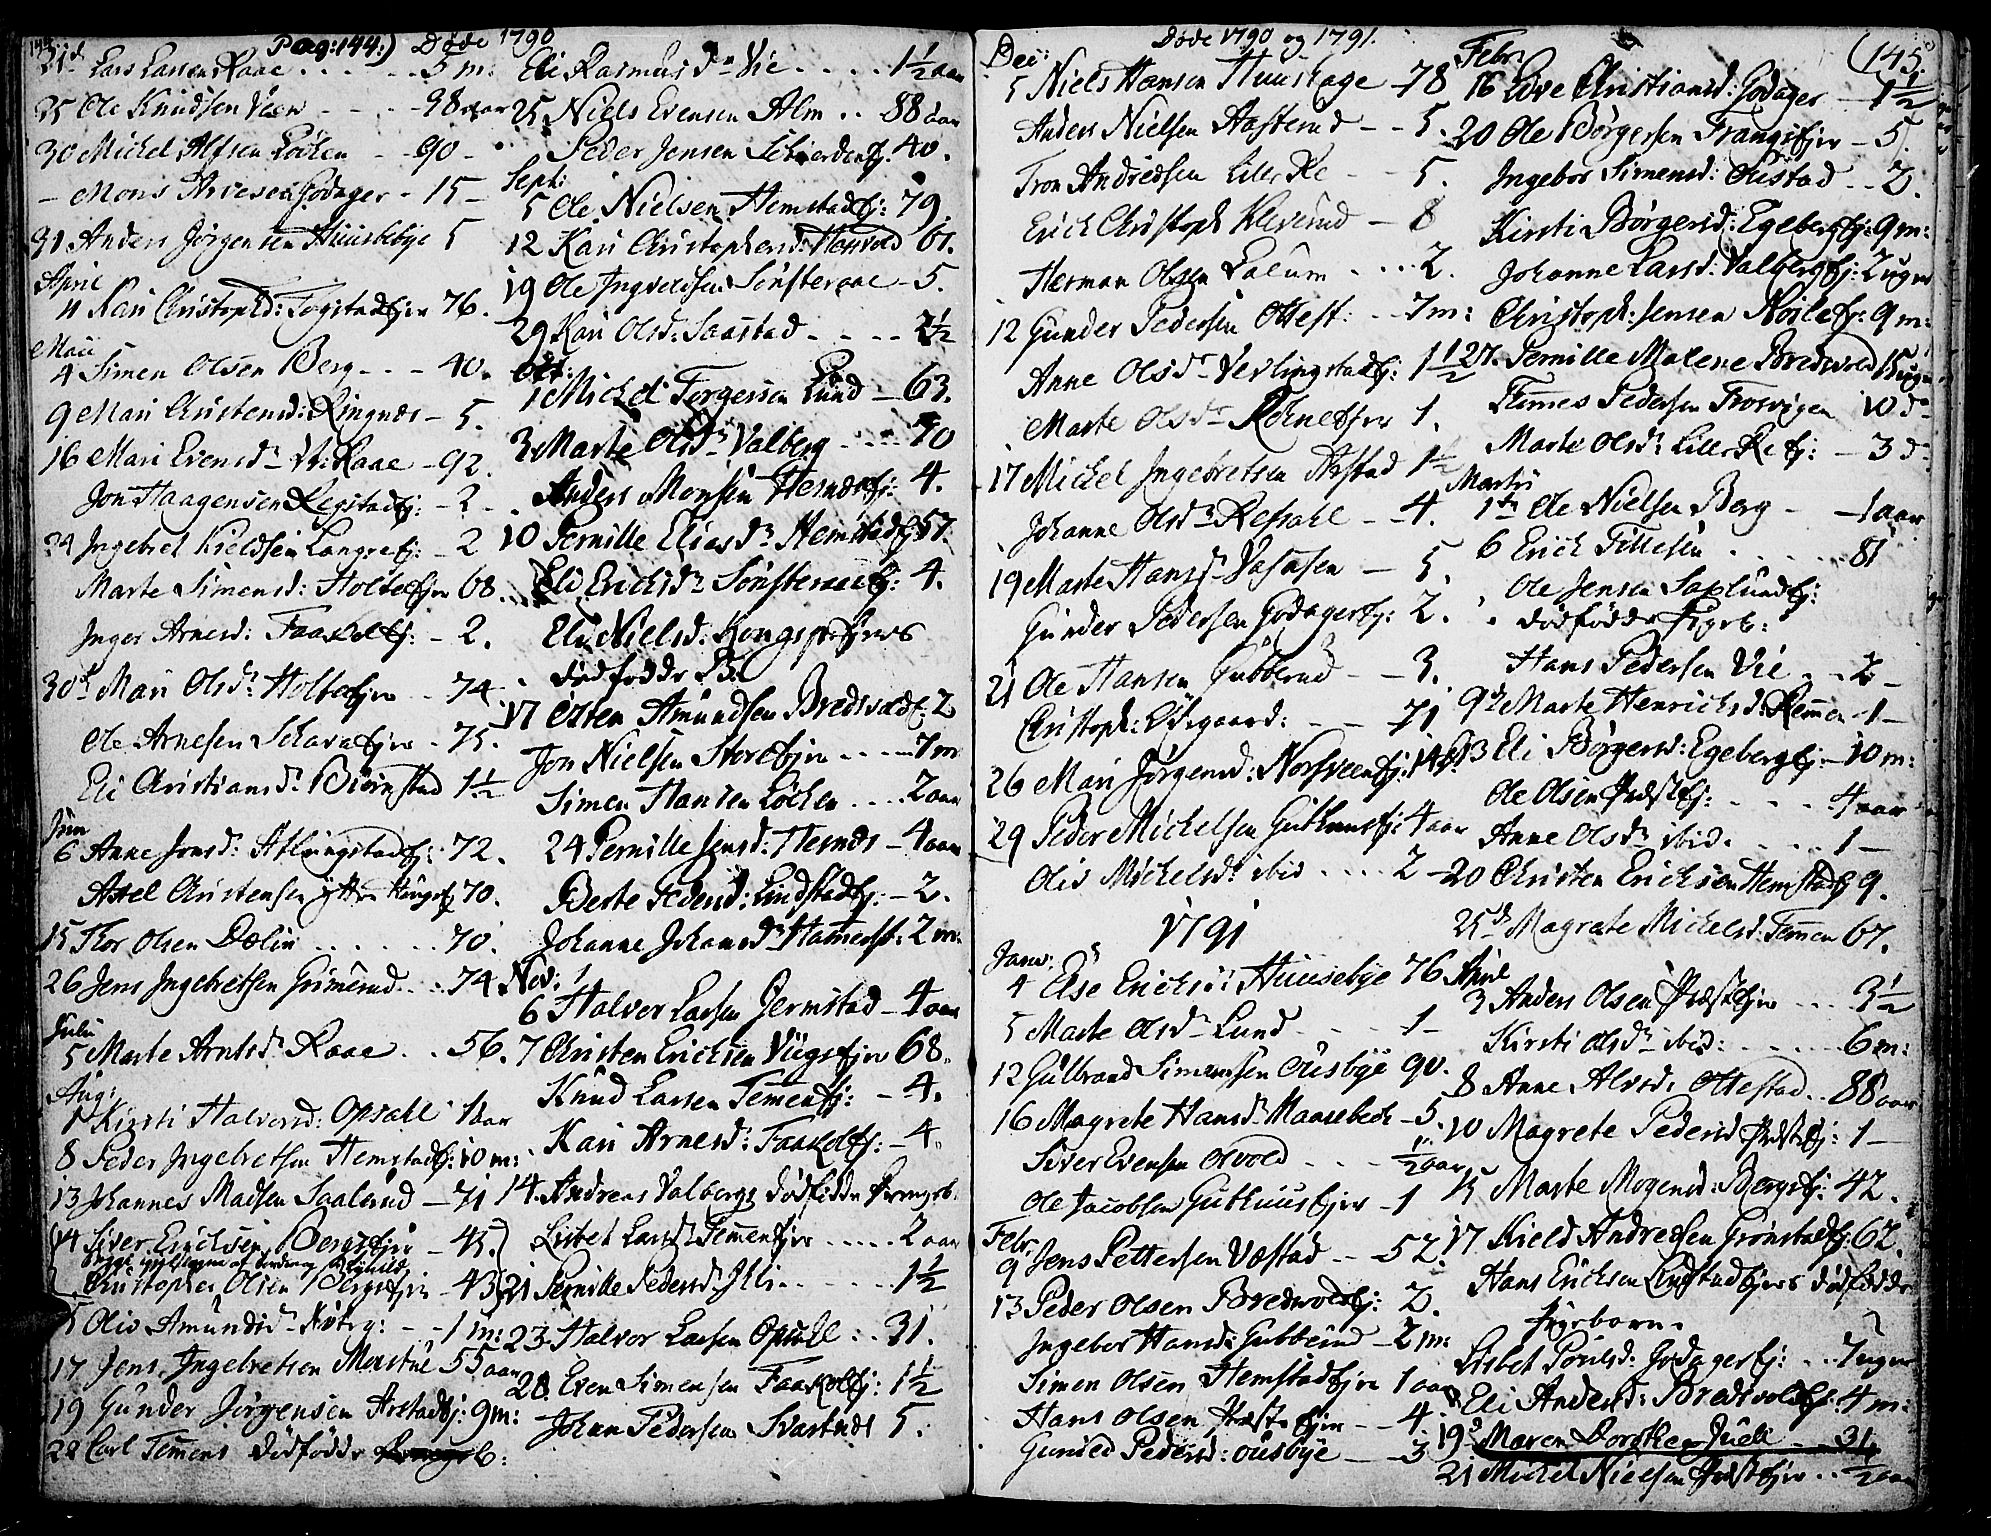 144. Pag: 144:) Døde 1790
21d Lars Larsen Raae . . . . . 5 m:
25 Ole Knudsen Veen - - - - 98 aar
30 Michel Alfsen Løcken - - 90 -
- Mons Arvesen Godager - 15 -
31 Anders Jørgensen Huusebye 5
April
11 Kari Christophd: Fogstadejer 76.
Maii
4 Simen Olsen Berg - - - 40.
9 Mari Christensd: Ringnæs - 5.
16 Mari Evensd. V: Raae - 92.
Jon Haagensen Regstadej: - 2 -
24 Ingebret Kieldsen Langreej: - 2
Marte Simensd: Holteejer 68.
Inger Arnesd: Faakolej: - 2.
30d Mari Olsdr Holteejer - 74
Ole Arnesen Schavaejer - 75.
Eli Christiansdr Biørnstad 1½
Juni
6 Anne Jonsd: Aflangstadej: 72.
Axel Christensen 70.
15 Thor Olsen Dælin . . . . . . 70.
26 Jens Ingebretsen Grimerud . . : 74
Julii
5 Marte Arntsdr Raae . . 56.
Aug:
1 Kirsti Halvorsd: Opsahl 1 aar
8 Peder Ingebretsen Hemstadej: 10 m:
13 Johannes Madsen Saalerud - 71
14 Siver Erichsen Bergsejer - 45.
Christopher Olsen Bergsejer - 43
5 Oliv Amundsd. - - 1 m:
17 Jens Ingebretsen Mostue 55 aar
19 Gunder Jørgensen Arstadej: 9 m:
28 Carl Temens dødfødde
Eli Rasmusdr Vie . . . . 1½ aar
25 Niels Evensen Alm . . 88 aar
Peder Jensen 40.
Sept:
5 Ole Nielsen Hemstadej: 79.
12 Kari Christophersd: 61.
19 Ole Ingvoldsen Sønsteraae - 5.
29 Kari Olsd: Saastad - - - - 2½
Oct:
1 Michel Torgersen Lund - 63.
3 Marte Olsdr Valberg - - - - 70
Anders Monsen Hernæsej: 4.
10 Pernille Eliasdr Hemstadej: 57.
Eli Erichsdr Sønsteraaeej: 4.
Eli Nielsd: Kongsp:ejers
dødfødde B:
17 Esten Amundsen Bredvoldej: 2
Jon Nielsen Storeejer - - - - 7 m
Simen Hansen Løcken . . . . 2 aar
24 Pernille Jensd: Hernæs - 4 aar
Berte Pedersd: Lindstadej: - 2.
Johanne Johansdr Hammerst: 2 m:
Nov:
6 Halvor Larsen Jermstad - 4 aar
7 Christen Ericksen Viigsejer 68.
Knud Larsen Temenej: - 4.
Kari Arnesd: Faakolej: - 4.
14. Andreas Valbergs dødfødde
Lisbet Larsdr Temenejer . . . . . 2 aar
21 Pernille Pedersdr . . . . . . . 1½
23 Halvor Larsen Opsahl . . 31.
28 Even Simensen Faakolej: 1½
Johan Pedersen Svartnæs 5.
Døde 1790 og 1791. (145.
Dec:
5 Niels Hansen Huusbage - 78
Anders Nielsen Aasterud - - 5.
Tron Andreasen Lille Re - - 5.
Erich Christoph Kleverud - 8
Herman Olsen Lalum . . . . 2.
12 Gunder Pedersen Ottest: - - 7 m:
Anne Olsdr Verlingstadej: 1½
Marte Olsdr Rohneejer 1.
17 Michel Ingebretsen Aastad 1½
Johanne Olsdr Refsahl - - 4.
19 Marte Hansdr Vasaasen - 5.
Gunder Pedersen Godagerej: 2.
21 Ole Hansen Gubberud - - 3.
Christoph: Ødegaard: - - 71
26 Mari Jørgensd: Norsveenej:
29 Peder Michelsen Guthuusej: 4 aar
Oliv Michelsdr ibid . . . . 2 -
1791
Janv:
4 Else Erichsd: Huusebye 76
5 Marte Olsdr Lund - - - - 1 -
12 Gulbrand Simensen Ousbye 90.
16 Magrete Hansdr Maasebech - 5.
Siver Evensen Olvold - - - ½ aar
Ole Jacobsen Guthuusejer - 1
Febr:
9 Jens Pettersen Væstad - - 52.
13 Peder Olsen Bredvoldej: 2.
Ingebor Hansd: Gubberud - 2 m:
Simen Olsen Hemstadejer 1 aar
Hans Olsen Præsteejer - - 4.
Gunild Pedersd: Ousbye - - 3
Febr:
16 Love Christiansd: Godager - 1½
20 Ole Børgersen Frangsejer - 5.
Ingebor Simensd: Ousstad - - 2.
Kirsti Børgersd: Egebergej: 9 m:
Johanne Larsd: Valbergej: 2 uger
Christoph: Jensen Noileej: 9 m:
27. Pernille Malene Bredvold 15 uger
Hemes Pedersen Frosvigen 10 d
Marte Olsdr Lille Re ej: - 3 d
Martii
1ste Ole Nielsen Berg - - 1 aar
6 Erich Tillesen . . . . . . 81
Ole Jensen Saxlundej:
dødfødde Pigeb:
Hans Pedersen Vie - - 2 -
9de Marte Henrichsd: Remmen - 1 -
13 Eli Børgersd: Egebergej: - 10 m:
Ole Olsen Præsteej: . . . . 4 aar
Anne Olsdr ibid. . . . . . 1 -
20 Christen Ericksen Hemstadej 9.
25de Magrete Michelsd: Temen 67.
April
3 Anders Olsen Præsteejer . . . 3½
Kirsti Olsdr ibid: . . . . . . 6 m:
8 Anne Alvsd: Ottestad . . 88 aar
10 Magrete Pedersd Præsteej: 1 -
15 Marte Mogensd: Bergsej: 42.
17 Kield Andresen Grønstadej: 62.
Hans Ericksen Lindstadejers dødfødde
Pigebarn.
Lisbet Povelsd: Godagerej: . . . 7 uger
Eli Andersd: Bredvoldej: 4 m:
19d Maren Dorthea Juell - - 31.
21 Michel Nielsen Præsteejer . . ½ aar